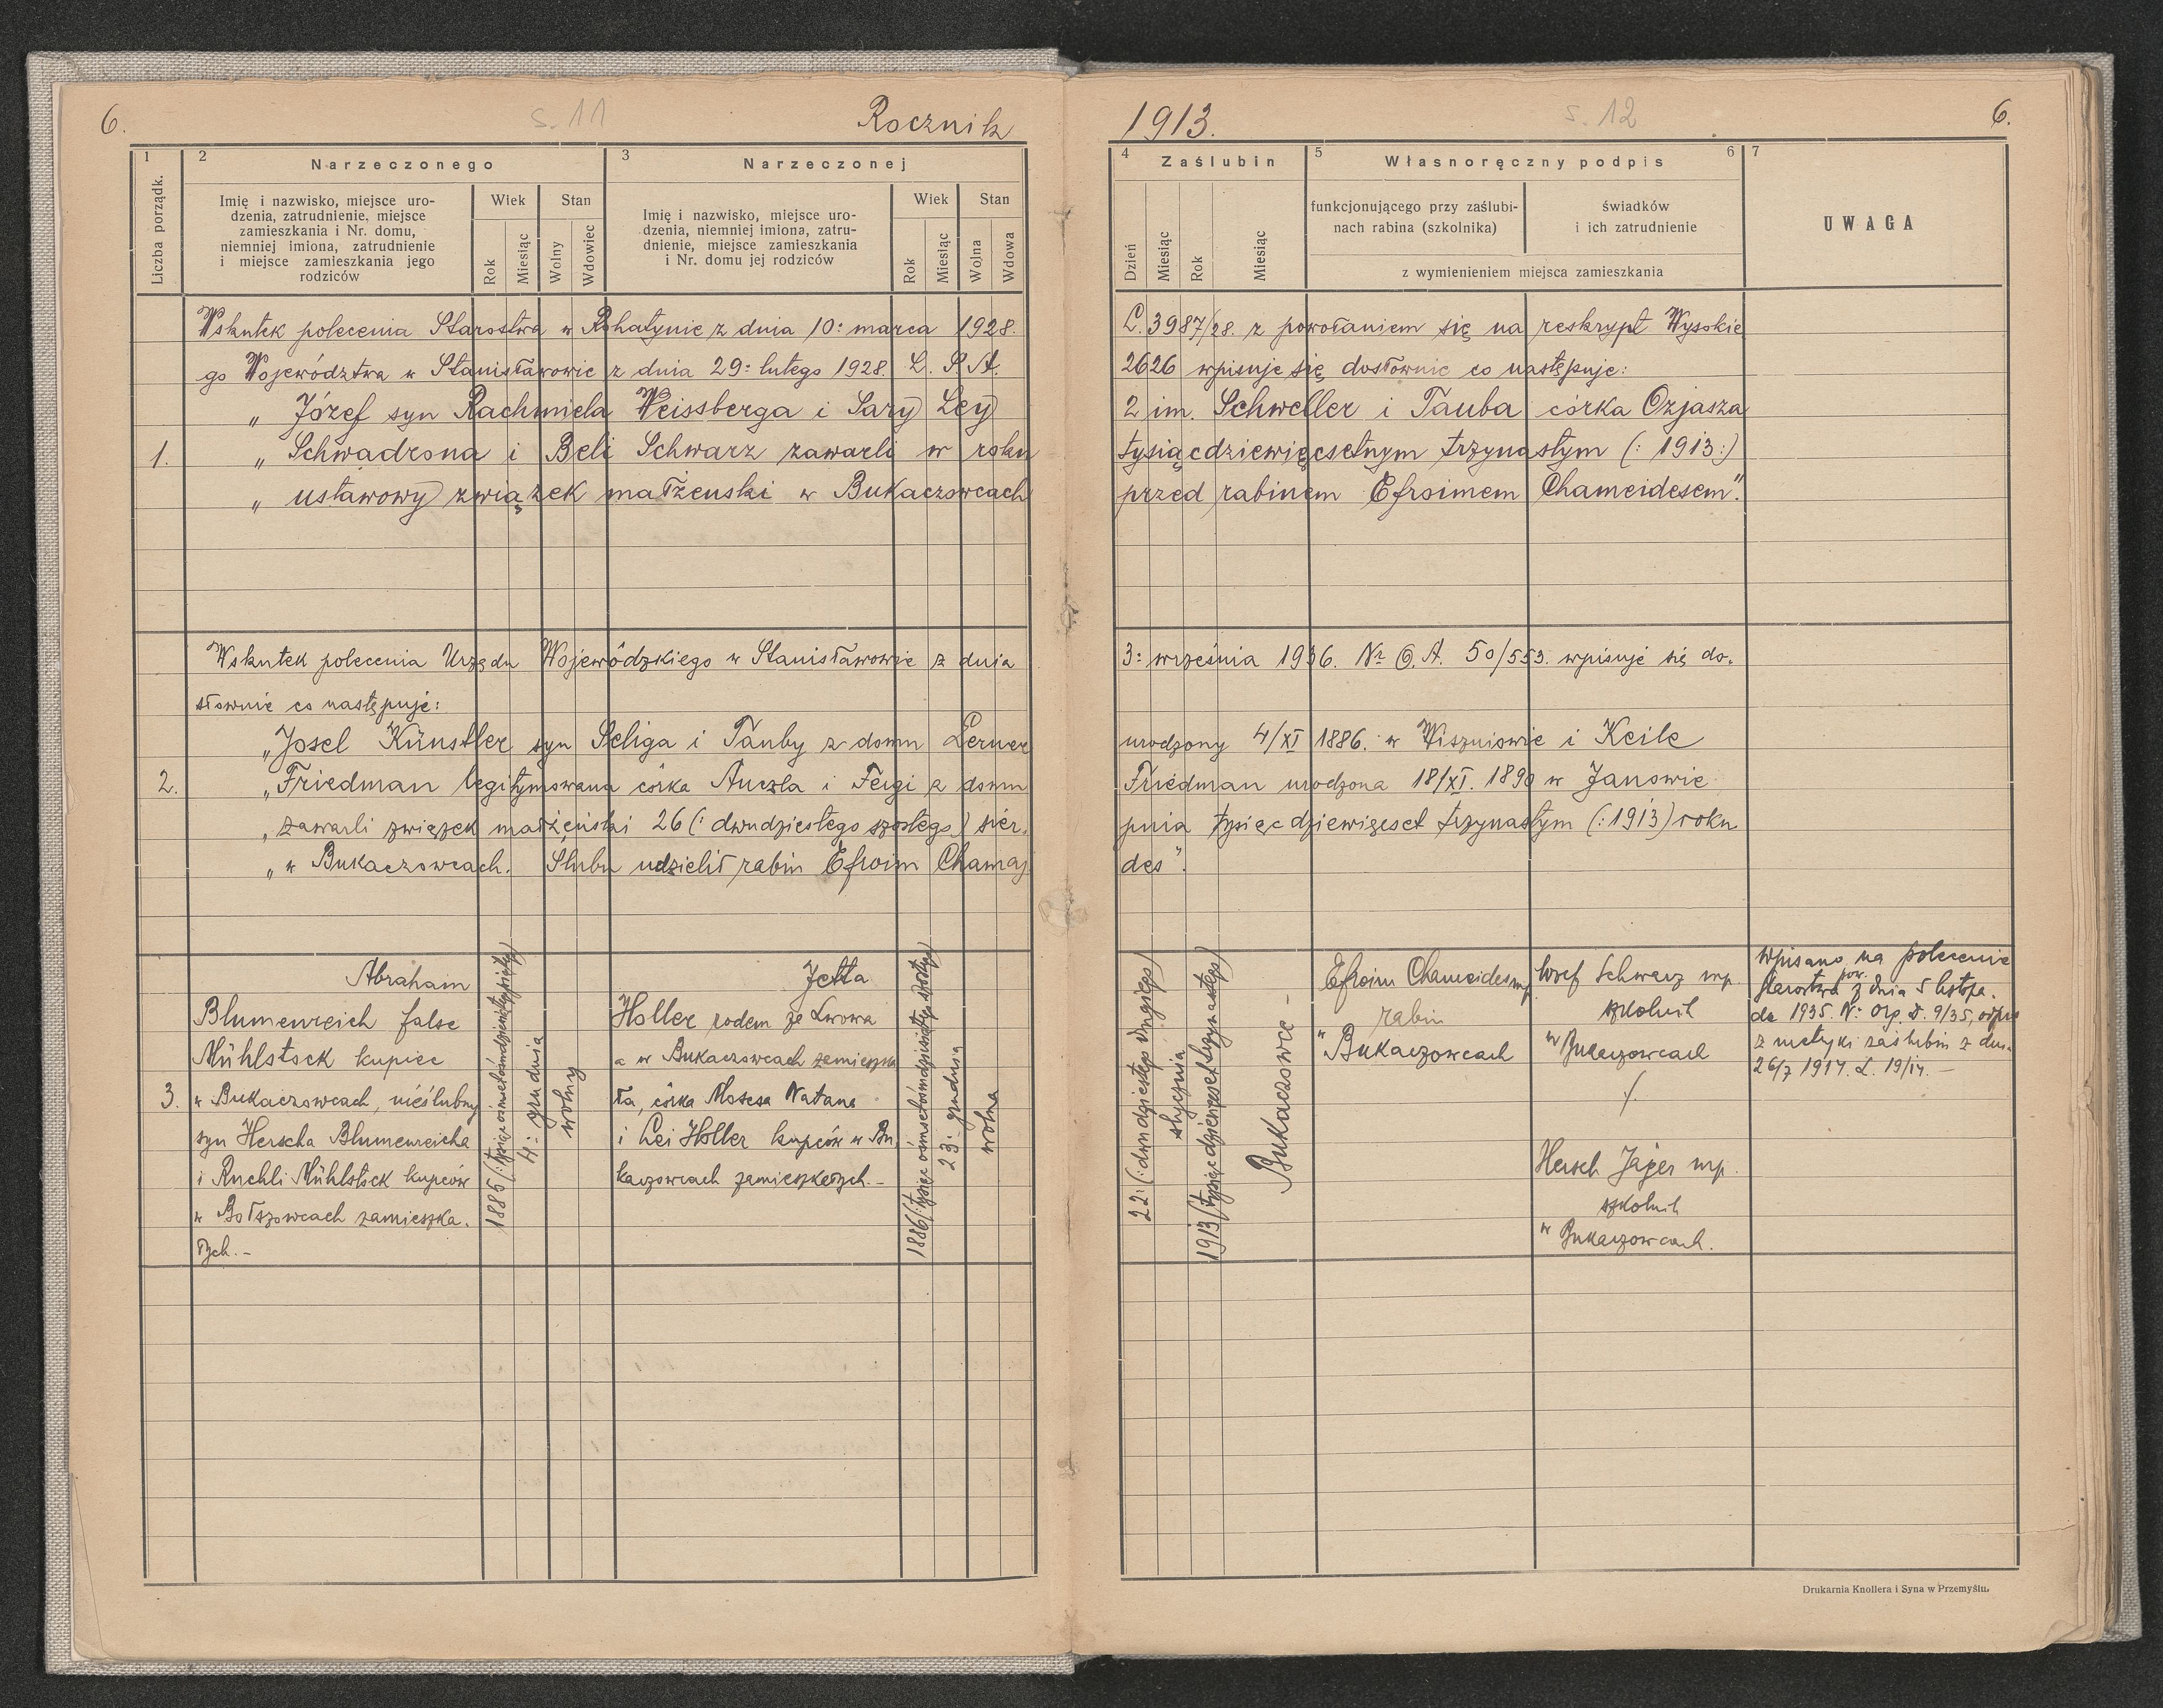 6.
s. 11
Rocznik
1
2
Narzeczonego
3
Narzeczonej
Liczba porządk.
Imię i nazwisko, miejsce uro-
dzenia, zatrudnienie, miejsce
zamieszkania i Nr. domu,
niemniej imiona, zatrudnienie
i miejsce zamieszkania jego
rodziców
Wiek
Stan
Rok
Miesiąc
Wolny
Wdowiec
Imię i nazwisko, miejsce uro-
dzenia, niemniej imiona, zatru-
dnienie, miejsce zamieszkania
i Nr. domu jej rodziców
Wiek
Stan
Rok
Miesiąc
Wolna
Wdowa
Wskutek polecenia Starostwa w Rohatynie z dnia 10: marca 1928.
go Województwa w Stanisławowie z dnia 29: lutego 1928. L. P. A.
„ Józef syn Rachmiela Weissberga i Sary Ley
1.
„ Schwadrona i Beli Schwarz zawarli w roku
„ ustawowy związek małżeński w Bukaczowcach
Wskutek polecenia Urzędu Wojewódzkiego w Stanisławowie z dnia
słownie co następuje:
„Josel Künstler syn Seliga i Tauby z domu Lerner
2.
„Friedman legitymowana córka Anczla i Feigi z domu
„zawarli związek małżeński 26 (: dwudziestego szóstego) sier.
„w Bukaczowcach. Ślubu udzielił rabin Efroim Chamaj
Abraham
Blumenreich false
Mühlstock kupiec
3.
w Bukaczowcach, nieślubny
syn Herscha Blumenreicha
i Ruchli Mühlstock kupców
w Bołszowcach zamieszka.
łych.-
1885 (: tysiąc ośmset ośmdziesiąty piąty)
4: grudnia
wolny
Jetta
Holler rodem ze Lwowa
a w Bukaczowcach zamieszka
ła, córka Mosesa Natana
i Lei Holler kupców w Bu,
kaczowcach zamieszkałych.-
1886 (: tysiąc ośmset ośmdziesiąty szósty)
23: grudnia
wolna
1913.
s. 12
6.
4
Zaślubin
5
Własnoręczny podpis
6
7
Dzień
Miesiąc
Rok
Miesiąc
funkcjonującego przy zaślubi-
nach rabina (szkolnika)
świadków
i ich zatrudnienie
z wymienieniem miejsca zamieszkania
UWAGA
L. 3987/28. z powołaniem się na reskrypt Wysokie
2626 wpisuje się dosłownie co następuje:
2 im. Schweller i Tauba córka Ozjasza
tysiącdziewięćsetnym trzynastym (: 1913:)
przed rabinem Efroimem Chameidesem".
3: września 1936. Nr O. A. 50/553. wpisuje się do.
urodzony 4/XI 1886. w Wiszniowie i Keile
Friedman urodzona 18/XI. 1890 w Janowie
pnia tysiąc dziewięćset trzynastym (: 1913) roku
des".
22: (: dwudziestego drugiego)
stycznia
1913 (: tysiąc dziewięćset trzynastego)
Bukaczowce -
Efroim Chameides mp
rabin
w Bukaczowcach
Josef Schwarz mp.
szkolnik
w Bukaczowcach
/
Hersch Jäger mp.
szkolnik
w Bukaczowcach.
Wpisano na polecenie
pow.
Starostwa z dnia 5 listopa.
da 1935. N: Org. D. 9/35, odpis
z metryki zaślubin z dnia
26/7 1914. L. 19/14. -
Drukarnia Knollera i Syna w Przemyślu.